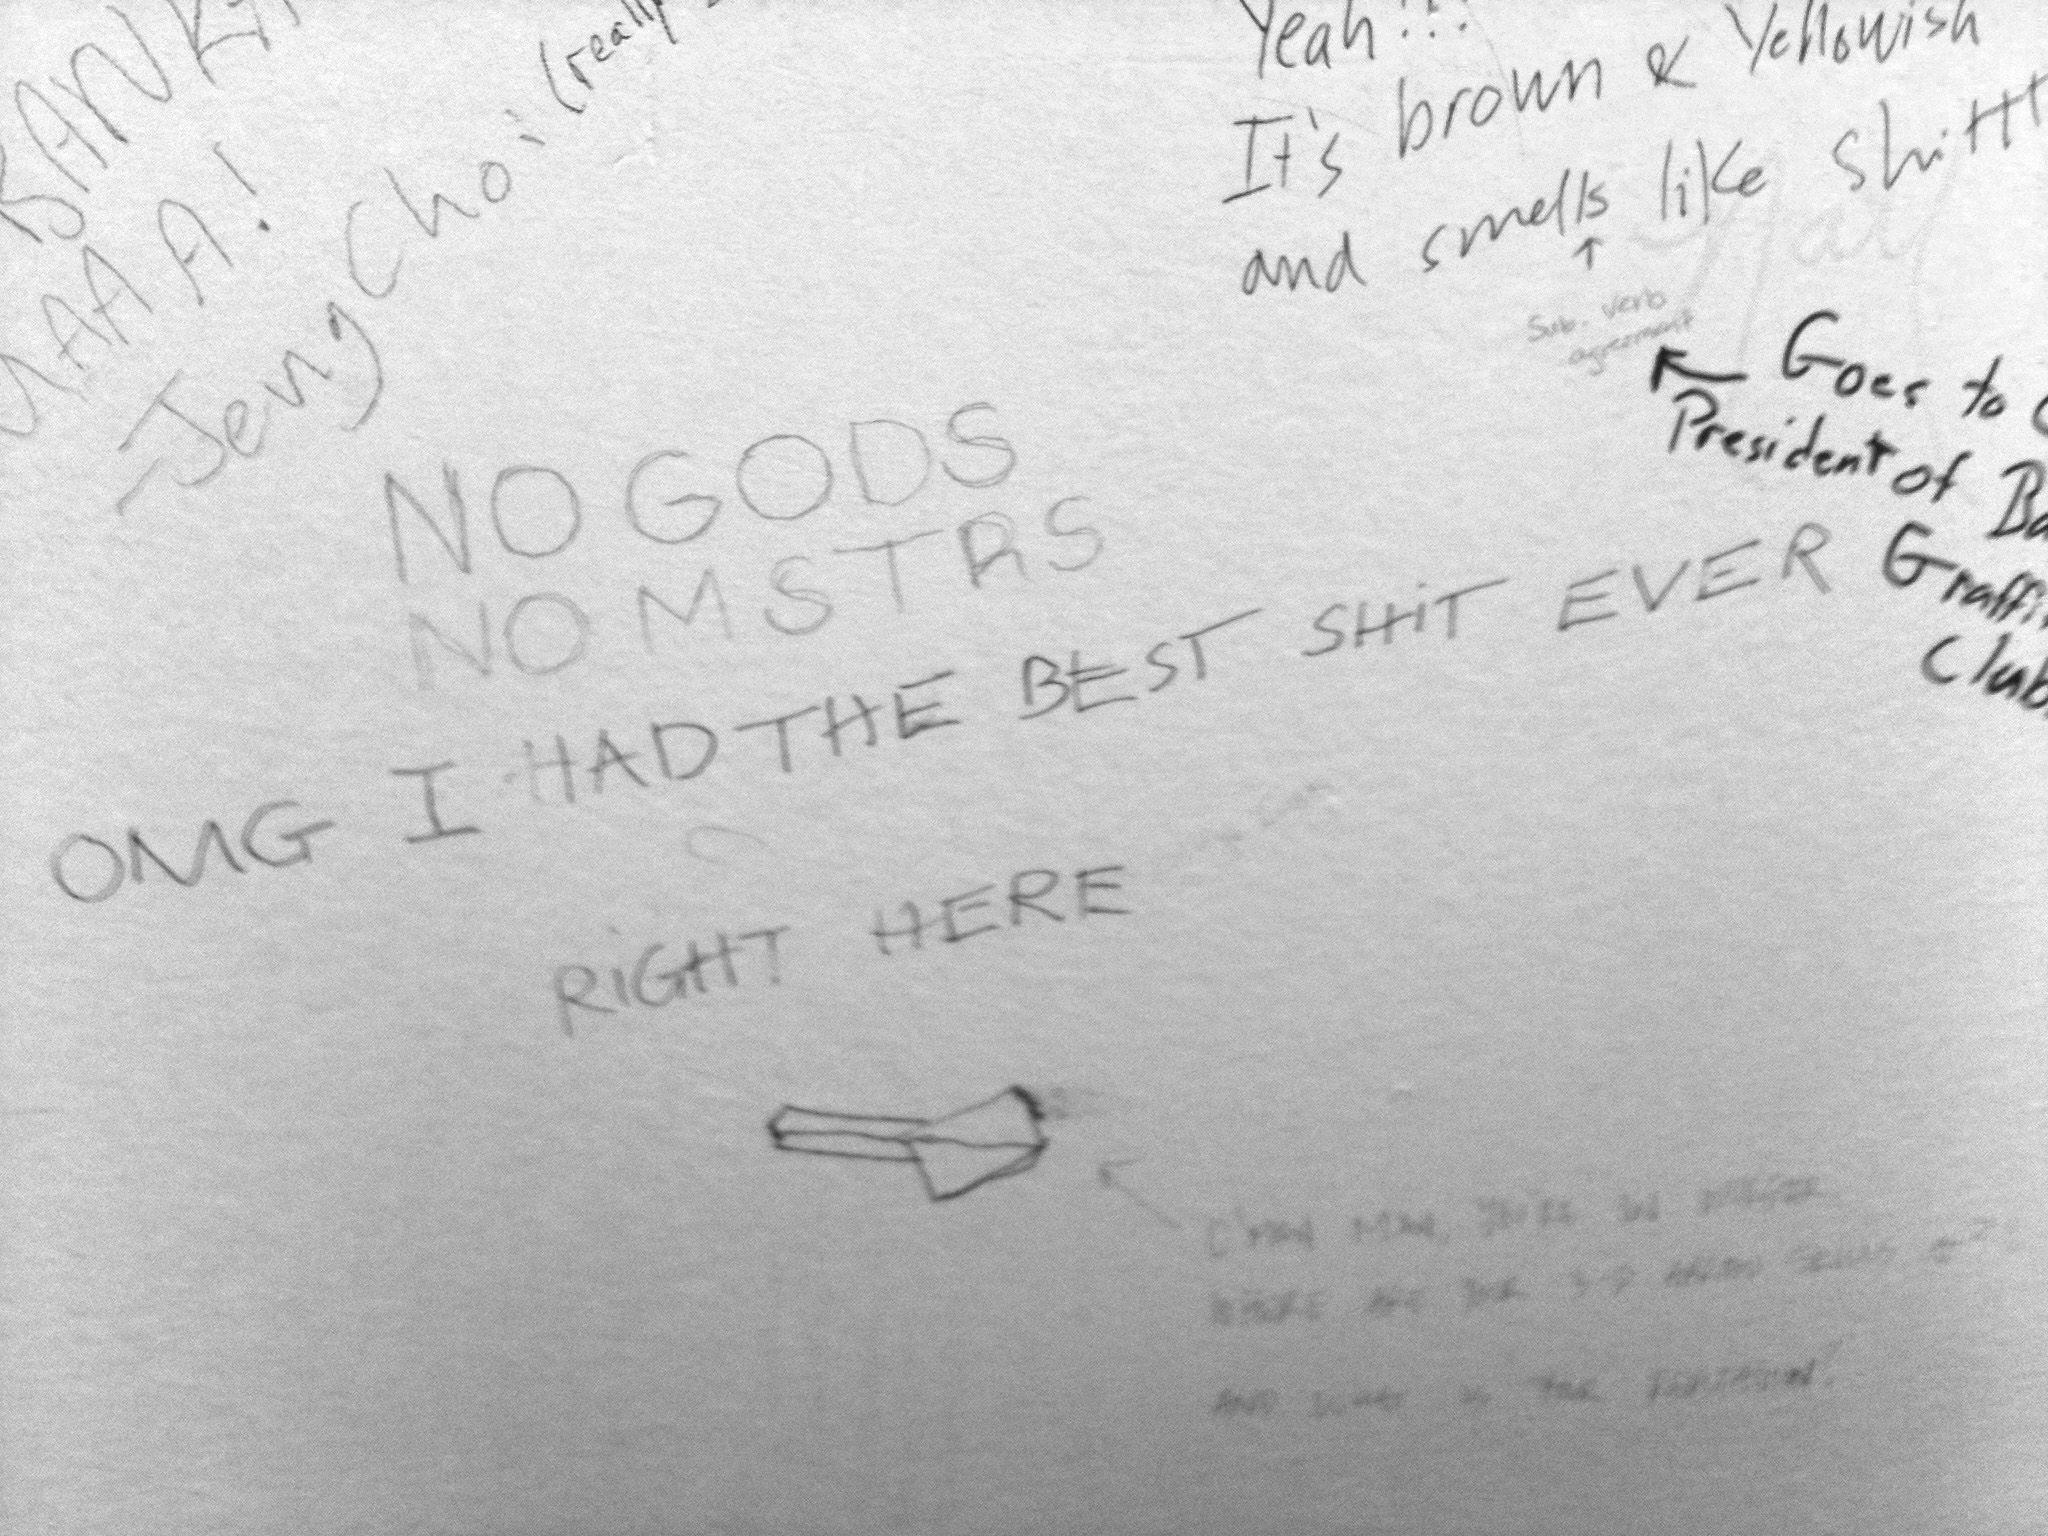 BANK
AAA!
-Jeng Choi (really
Yeah!!!
It's brown & Yellowish
and smells like shittt
↑
Sub. verb
agreement
← Goes to
President of
Graffi
Club
NO GODS
NO MSTRS
OMG I HAD THE BEST SHiT EVER
RiGHT HERE
C'MON MAN,
WHERE ARE YOUR
AND WHAT IS THE